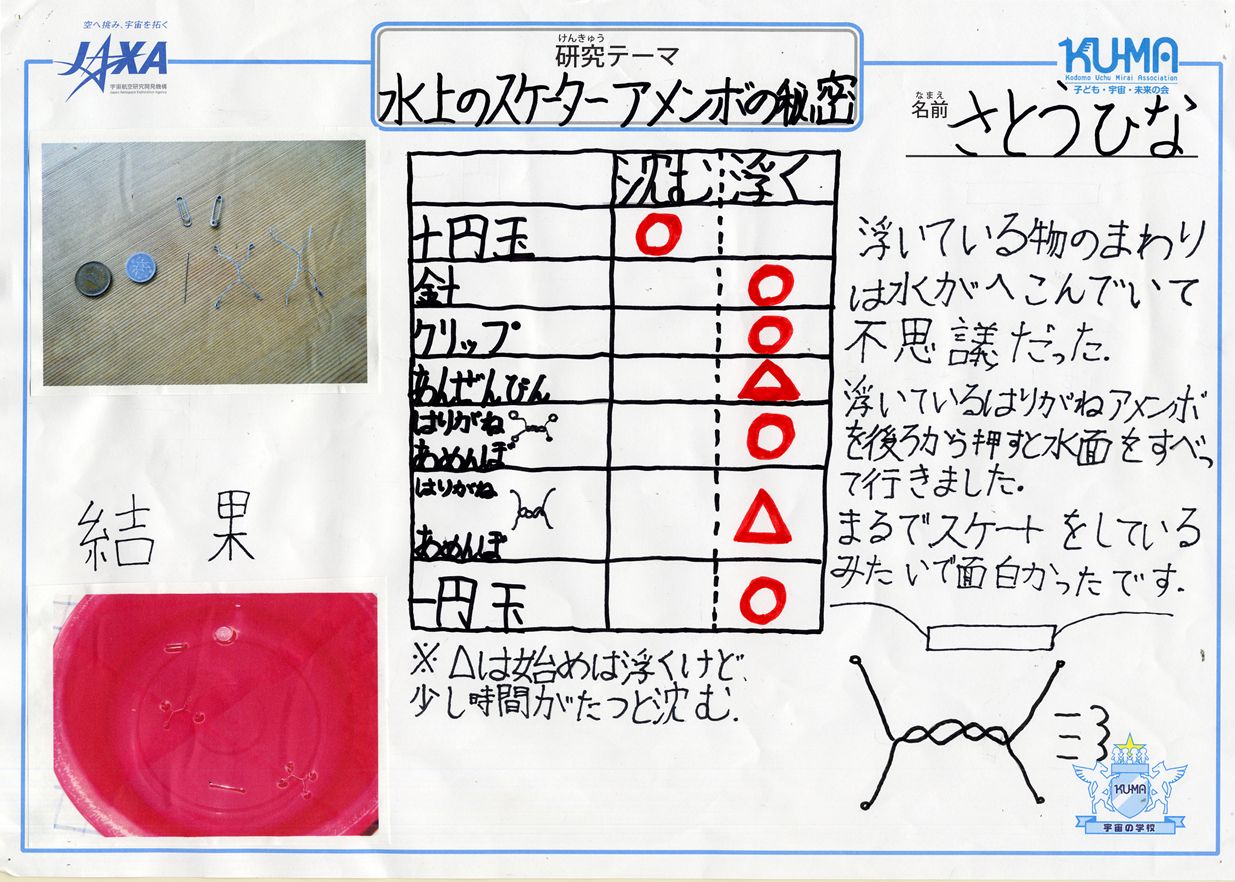 空へ挑み、宇宙を拓く
JAXA
宇宙航空研究開発機構
Japan Aerospace Exploration Agency
けんきゅう
研究テーマ
水上のスケーターアメンボの秘密
KU-MA
Kodomo Uchu Mirai Association
子ども・宇宙・未来の会
なまえ
名前 さとうひな
沈む 浮く
十円玉 ○
針 ○
クリップ ○
あんぜんぴん △
はりがね
あめんぼ ○
はりがね
あめんぼ △
一円玉 ○
※△は始めは浮くけど、
少し時間がたつと沈む.
結果
浮いている物のまわり
は水がへこんでいて
不思議だった.
浮いているはりがねアメンボ
を後ろから押すと水面をすべっ
て行きました.
まるでスケートをしている
みたいで面白かったです.
KU-MA
宇宙の学校